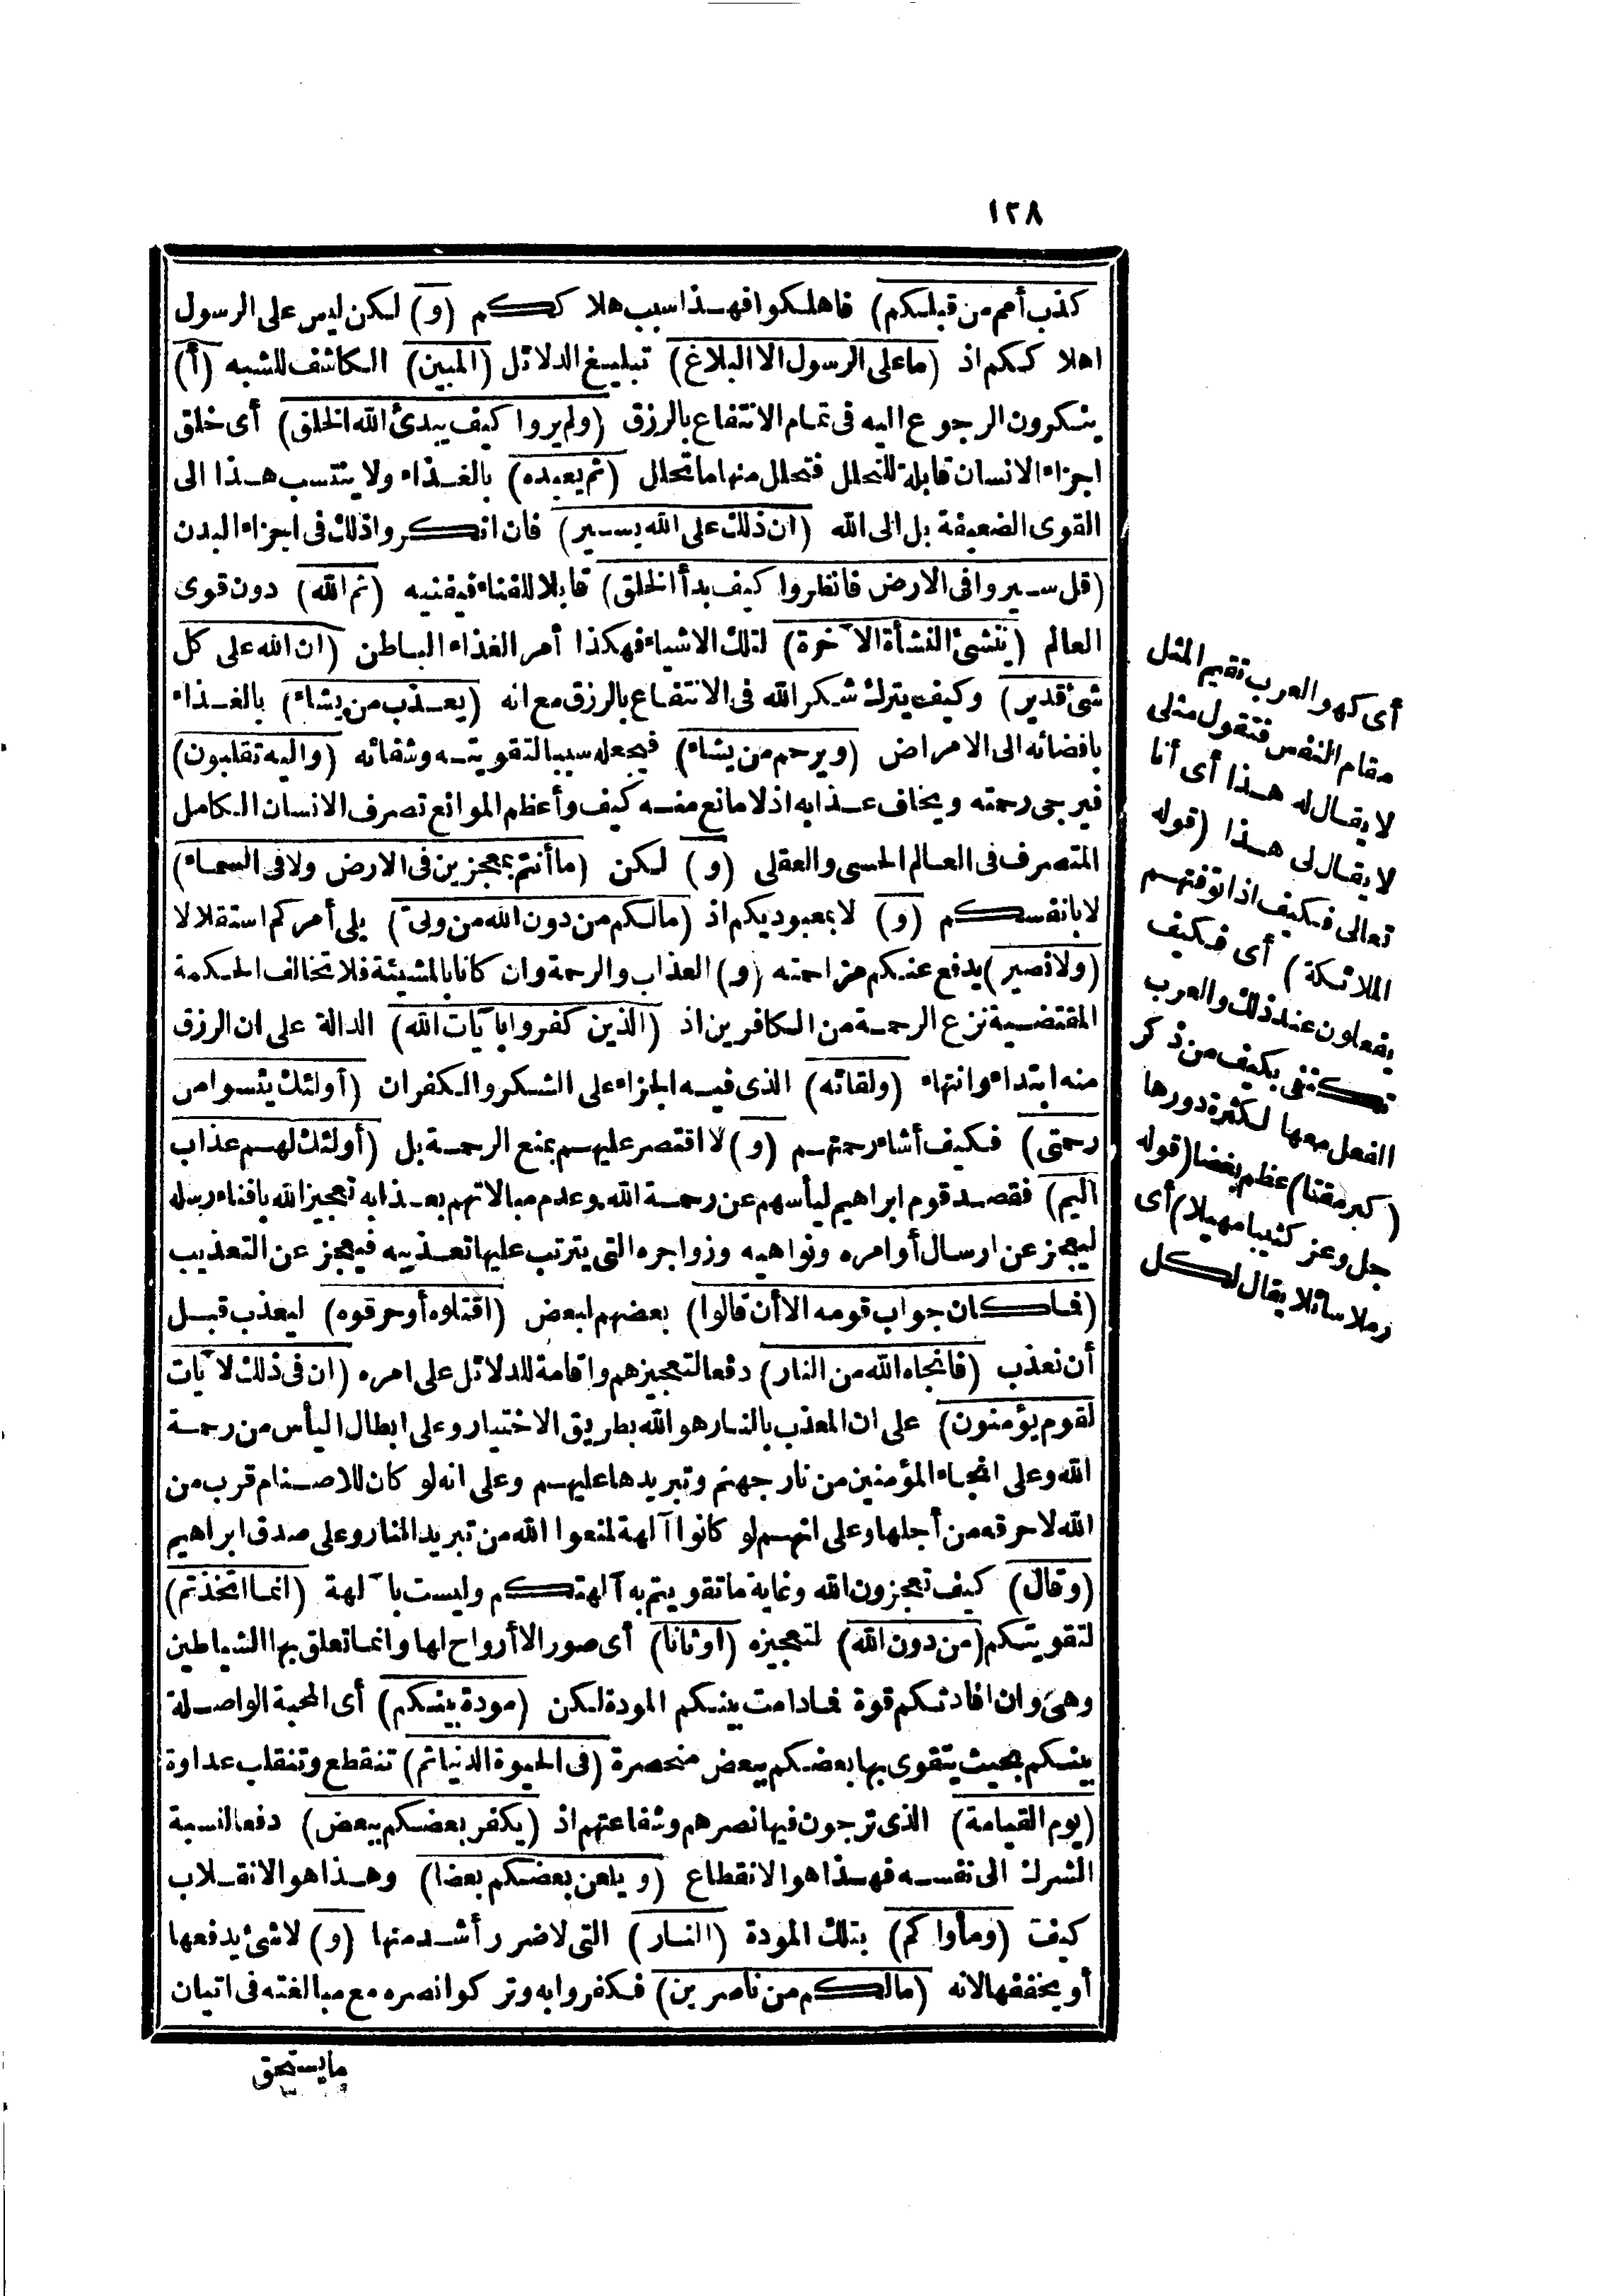 ١٢٨
كذب أمم من قبلكم) فاهلكوا فهذا سبب هلاككم (و) لكن ليس على الرسول
اهلاككم اذ (ما على الرسول الا البلاغ) تبليغ الدلائل (المبين) الكاشف للشبه (أ)
ينكرون الرجوع اليه فى تمام الانتفاع بالرزق (ولم يروا كيف يبدئ الله الخلق) أى خلق
اجزاء الانسان قابلة للتحلل فتحلل منها ما تحلل (ثم يعيده) بالغذاء ولا ينتسب هذا الى
القوى الضعيفة بل الى الله (ان ذلك على الله يسير) فان انكروا ذلك فى اجزاء البدن
(قل سيروا فى الارض فانظروا كيف بدأ الخلق) قابلا للفناء فيفنيه (ثم الله) دون قوى
العالم (ينشئ النشأة الآخرة) لتلك الاشياء فهكذا أمر الغذاء الباطن (ان الله على كل
شئ قدير) وكيف يترك شكر الله فى الانتفاع بالرزق مع انه (يعذب من يشاء) بالغذاء
بافضائه الى الامراض (ويرحم من يشاء) فيجعله سببا لتقويته وشفائه (واليه تقلبون)
فيرجى رحمته ويخاف عذابه اذ لا مانع منه كيف وأعظم الموانع تصرف الانسان الكامل
المتصرف فى العالم الحسى والعقلى (و) لكن (ما أنتم بمعجزين فى الارض ولا فى السماء)
لا بانفسكم (و) لا بمعبوديكم اذ (مالكم من دون الله من ولى) يلى أمركم استقلالا
(ولا نصير) يدفع عنكم مزاحمته (و) العذاب والرحمة وان كانا بالمشيئة فلا تخالف الحكمة
المقتضية نزع الرحمة من الكافرين اذ (الذين كفروا بآيات الله) الدالة على ان الرزق
منه ابتداء وانتهاء (ولقائه) الذى فيه الجزاء على الشكر والكفران (أولئك يئسوا من
رحمتى) فكيف أشاء رحمتهم (و) لا اقتصر عليهم بمنع الرحمة بل (أولئك لهم عذاب
اليم) فقصد قوم ابراهيم ليأسهم عن رحمة الله وعدم مبالاتهم بعذابه تعجيز الله بافناء رسله
ليعجز عن ارسال أوامره ونواهيه وزواجره التى يترتب عليها تعذيبه فيعجز عن التعذيب
(فما كان جواب قومه الا أن قالوا) بعضهم لبعض (اقتلوه أو حرقوه) ليعذب قبل
أن نعذب (فانجاه الله من النار) دفعا لتعجيزهم واقامة للدلائل على امره (ان فى ذلك لآيات
لقوم يؤمنون) على ان المعذب بالنار هو الله بطريق الاختيار وعلى ابطال اليأس من رحمة
الله وعلى انجاء المؤمنين من نار جهنم وتبريدها عليهم وعلى انه لو كان للاصنام قرب من
الله لاحرقه من أجلها وعلى انهم لو كانوا آلهة لمنعوا الله من تبريد النار وعلى صدق ابراهيم
(وقال) كيف تعجزون الله وغاية ما تقويتم به آلهتكم وليست بآلهة (انما اتخذتم)
لتقويتكم (من دون الله) لتعجيزه (اوثانا) أى صور الا أرواح لها وانما تعلق بها الشياطين
وهى وان افادتكم قوة فما دامت بينكم المودة لكن (مودة بينكم) أى المحبة الواصلة
بينكم بحيث يتقوى بها بعضكم ببعض منحصرة (فى الحيوة الدنيا ثم) تنقطع وتنقلب عداوة
(يوم القيامة) الذى ترجون فيها نصرهم وشفاعتهم اذ (يكفر بعضكم ببعض) دفعا لنسبة
الشرك الى نفسه فهذا هو الانقطاع (ويلعن بعضكم بعضا) وهذا هو الانقلاب
كيف (ومأواكم) بتلك المودة (النار) التى لا ضرر أشد منها (و) لا شئ يدفعها
أو يخففها لانه (مالكم من ناصرين) فكفروا به وتركوا نصره مع مبالغته فى اتيان
ما يستحق
أى كهو والعرب تقيم المثل
مقام النفس فتقول مثلى
لا يقال له هذا أى أنا
لا يقال لى هذا (قوله
تعالى فكيف اذا توفتهم
الملائكة) أى فكيف
يفعلون عند ذلك والعرب
تكتفى بكيف من ذكر
الفعل معها لكثرة دورها
(كبر مقتا) عظم بغضا (قوله
جل وعز كثيبا مهيلا) أى
رملا سائلا يقال لكل